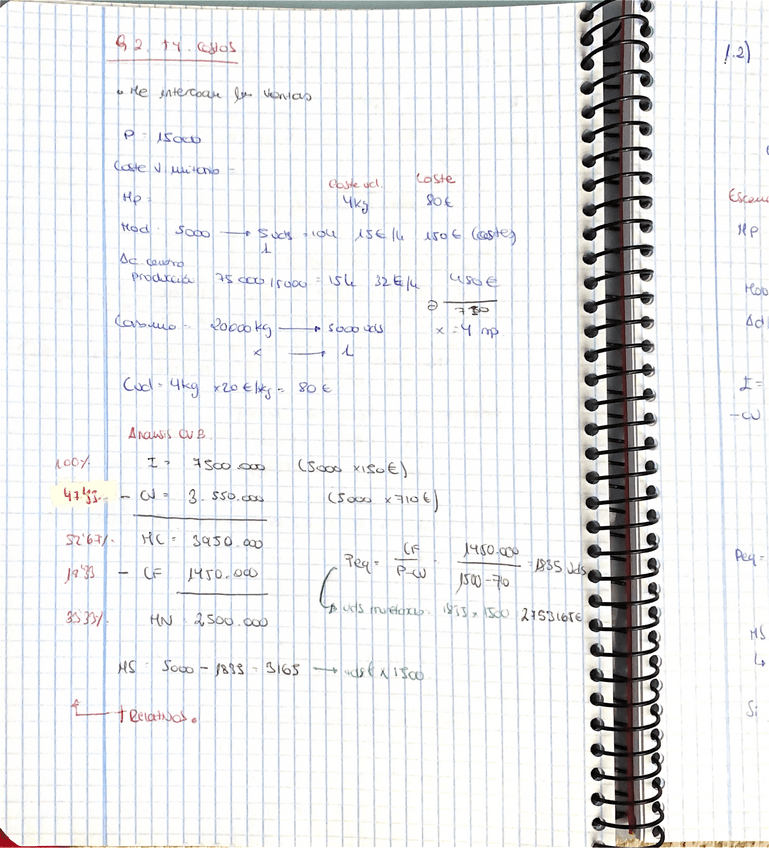 G 2. T4. Costos
• Me interesan las ventas
P = 15000
Coste V. unitario =
Coste ud. Coste
Mp: 4kg 80€
Mod: 5000 → 5 uds = 10h 15€/h 150€ (costes)
1
Δc centro
producción 75 000 / 5000 = 15h 32€/h 450€
710
Consumo = 20000 kg → 5000 uds x = 4 mp
x → 1
Cud = 4kg x 20€/kg = 80€
Analisis CVB
100% I = 7500.000 (5000 x 150€)
47'33 - CV = 3.550.000 (5000 x 710€)
52'67% MC = 3950.000
19'33 - CF 1450.000
33'33% MN = 2500.000
Peq = CF / P-CV = 1450.000 / 1500-70 = 1835 uds
uds monetarias = 1835 x 1500 2753165€
MS = 5000 - 1835 = 3165 → uds € x 1500
+ Relativos.
1.2)
Escena
Mp
Mod
Δd
I =
- CV
Peq =
MS
Si